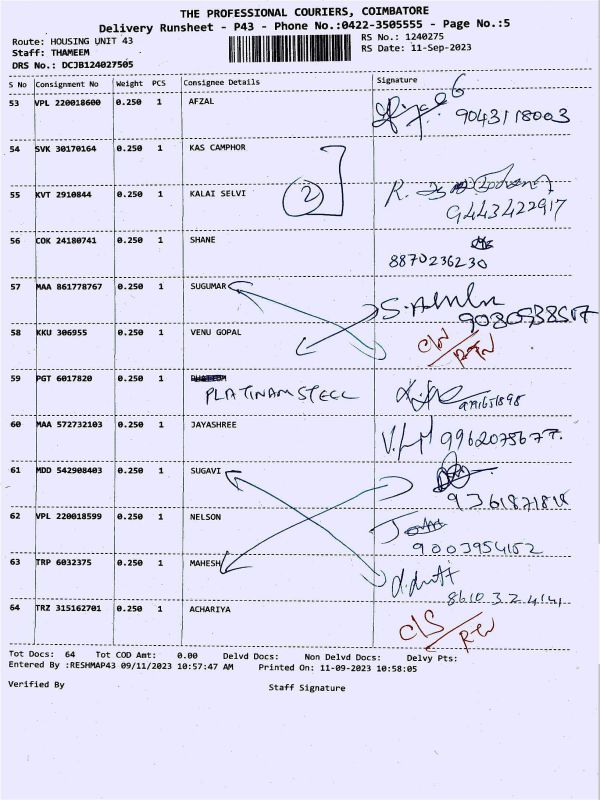 THE PROFESSIONAL COURIERS, COIMBATORE
Delivery Runsheet - P43 - Phone No.:0422-3505555 - Page No.:5
Route: HOUSING UNIT 43
RS No.: 1240275
Staff: THAMEEM
RS Date: 11-Sep-2023
DRS No.: DCJB124027505
S No Consignment No Weight PCS Consignee Details Signature
53 VPL 220018600 0.250 1 AFZAL
9043118003
54 SVK 30170164 0.250 1 KAS CAMPHOR
2
55 KVT 2910844 0.250 1 KALAI SELVI
R.
9443422917
56 COK 24180741 0.250 1 SHANE
8870236230
57 MAA 861778767 0.250 1 SUGUMAR
58 KKU 306955 0.250 1 VENU GOPAL
59 PGT 6017820 0.250 1
PLATINAM STEEL
60 MAA 572732103 0.250 1 JAYASHREE
61 MDD 542908403 0.250 1 SUGAVI
62 VPL 220018599 0.250 1 NELSON
9003954152
63 TRP 6032375 0.250 1 MAHESH
64 TRZ 315162701 0.250 1 ACHARIYA
C/S
Tot Docs: 64 Tot COD Amt: 0.00 Delvd Docs: Non Delvd Docs: Delvy Pts:
Entered By :RESHMAP43 09/11/2023 10:57:47 AM Printed On: 11-09-2023 10:58:05
Verified By Staff Signature